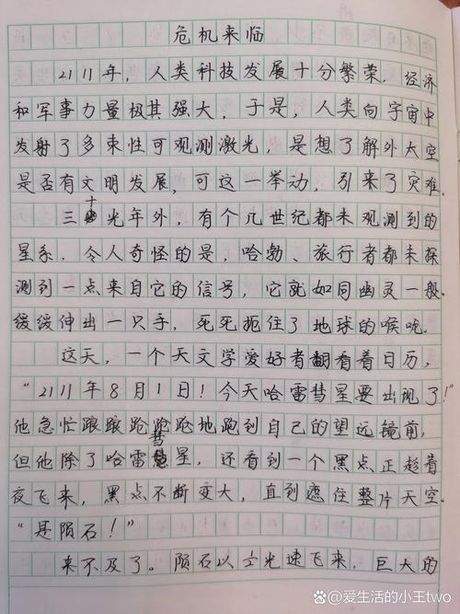 危机来临
2111年，人类科技发展十分繁荣，经济
和军事力量极其强大，于是，人类向宇宙中
发射了多束性可观测激光，是想了解外太空
是否有文明发展，可这一举动，引来了灾难.
三十光年外，有个几世纪都未观测到的
星系．令人奇怪的是，哈勃、旅行者都未探
测到一点来自它的信号，它就如同幽灵一般.
缓缓伸出一只手，死死扼住了地球的喉咙.
这天，一个天文学爱好者翻看着日历，
“2111年8月1日！今天哈雷彗星要出现了！”
他急忙踉踉跄跄地跑到自己的望远镜前，
但他除了哈雷彗星，还看到一个黑点正趁着
夜飞来，黑点不断变大，直到遮住整片天空.
“是陨石！”
来不及了。陨石以光速飞来，巨大的
@爱生活的小王two